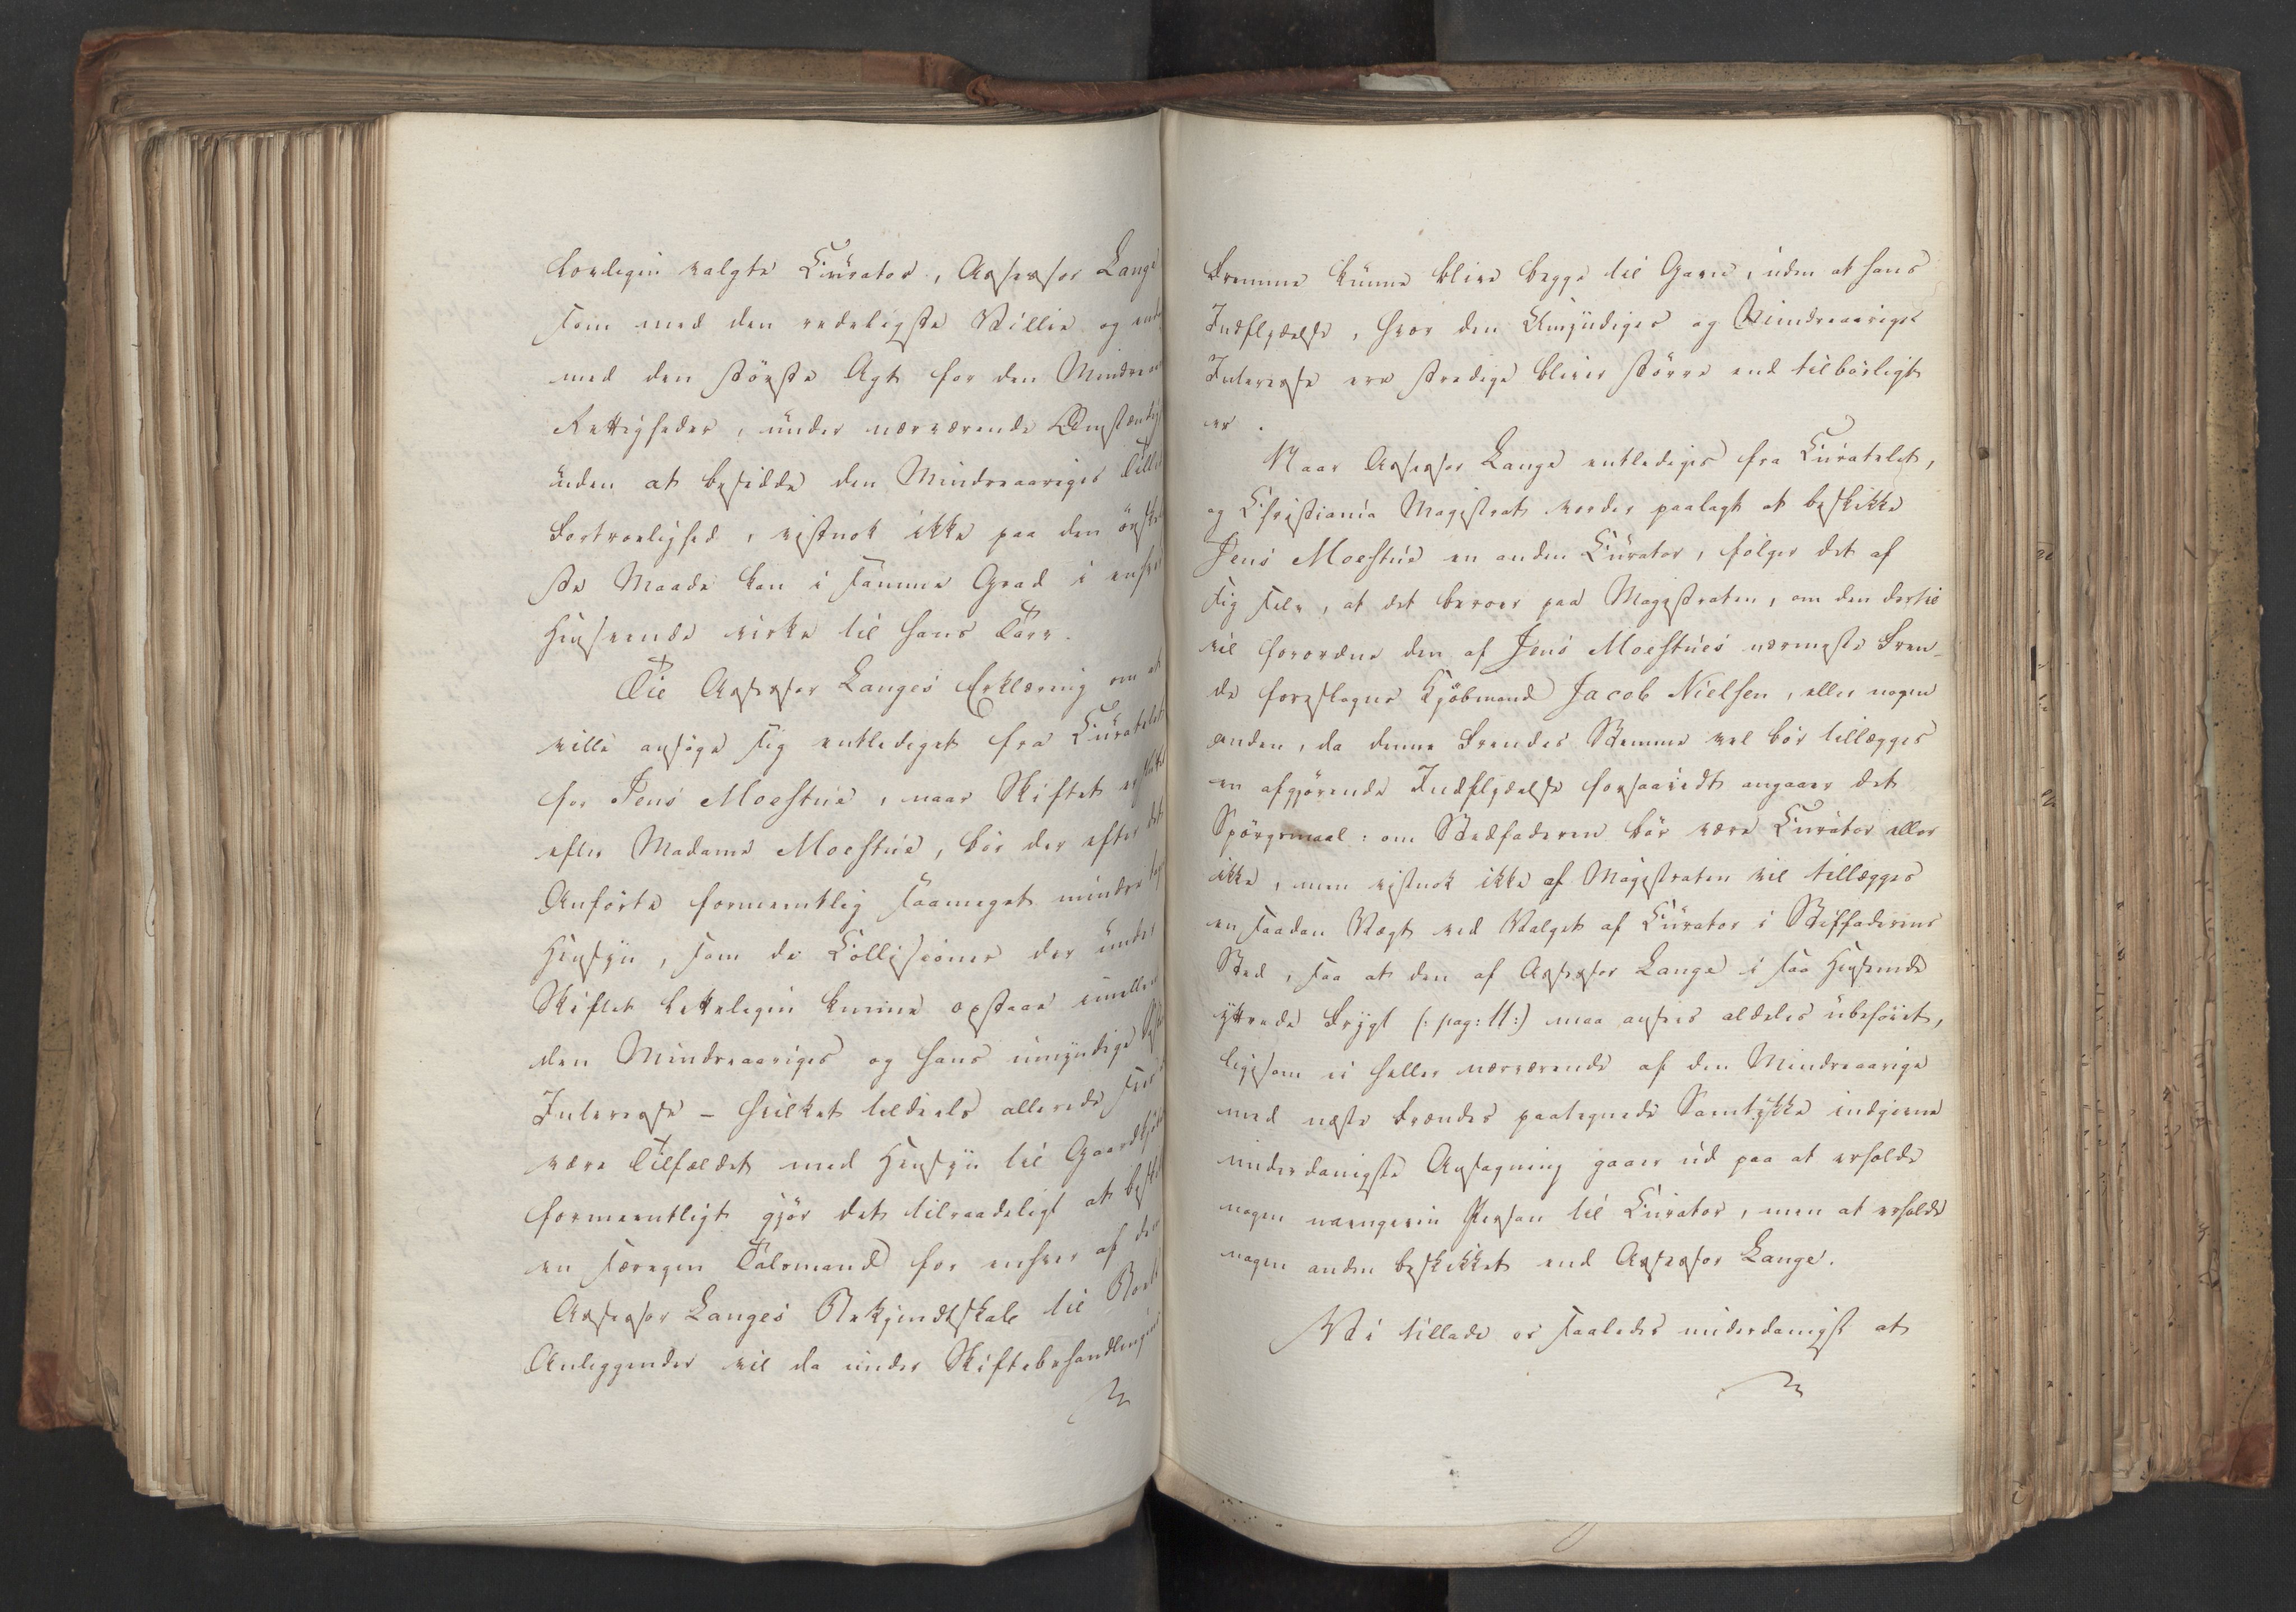 fordegin valgte Curator, Assessor Lange
som med den redeligste Villie og
med den störste Agt for den Mindre
Rettigheder, under nærværende Omstændig
uden at besidde den Mindreaariges Tillid
Fortroelighed, vistnok ikke paa den önske
ste Maade kan i samme Grad i enhver
Henseende virke til hans Tarv.
Til Assessor Langes Erklæring om at
ville ansöge sig entlediget fra Curatelet
for Jens Moestue, naar Skiftet er sluttet
efter Madame Moestue, bör der efter det
Anförte formeentlig saameget mindre tages
Hensyn, som de Collisioner der under
Skiftet lettelegen kunne opstaae imellem
den Mindreaariges og hans umyndige
Interesse - hvilket tildeels allerede
være Tilfældet med Hensyn til Gaardkjöb
formeentligt gjör det tilraadeligt at
en særegen Talsmand for enhver af de
Assessor Langes Bekjendtskab til Boets
Anliggender vil da under Skiftebehandlingen
Fremme kunne blive begge til Gavn, uden at hans
Indflydelse, hvor den Umyndiges og Mindreaariges
Interesse ere stridige bliver större end tilbörligt
er.
Naar Assessor Lange entlediges fra Curatelet,
og Christiania Magistrat vorder paalagt at beskikke
Jens Moestue en anden Curator, fölger det af
sig selv, at det beroer paa Magistraten, om den dertil
vil forordne den af Jens Moestues nærmeste Fræn-
de foreslagne Kjöbmand Jacob Nielsen, eller nogen
anden, da denne Frændes Stemme vel bör tillægges
en afgjörende Indflydelse forsaavidt angaaer det
Spörgsmaal: om Stedfaderen bör være Curator eller
ikke, men vistnok ikke af Magistraten vil tillægges
en saadan Vægt ved Valget af Curator i Stiffaderens
Sted, saa at den af Assessor Lange i saa Henseende
yttrede Frygt (: pag: 11 :) maa ansees aldeles ubeföiet,
ligesom ei heller nærværende af den Mindreaarige
med næste Frændes paategnede Samtykke indgivne
underdanigste Ansøgning gaaer ud paa at erholde
nogen navngiven Person til Curator, men at erholde
nogen anden beskikket end Assessor Lange.
Vi tillade os saaledes underdanigst at